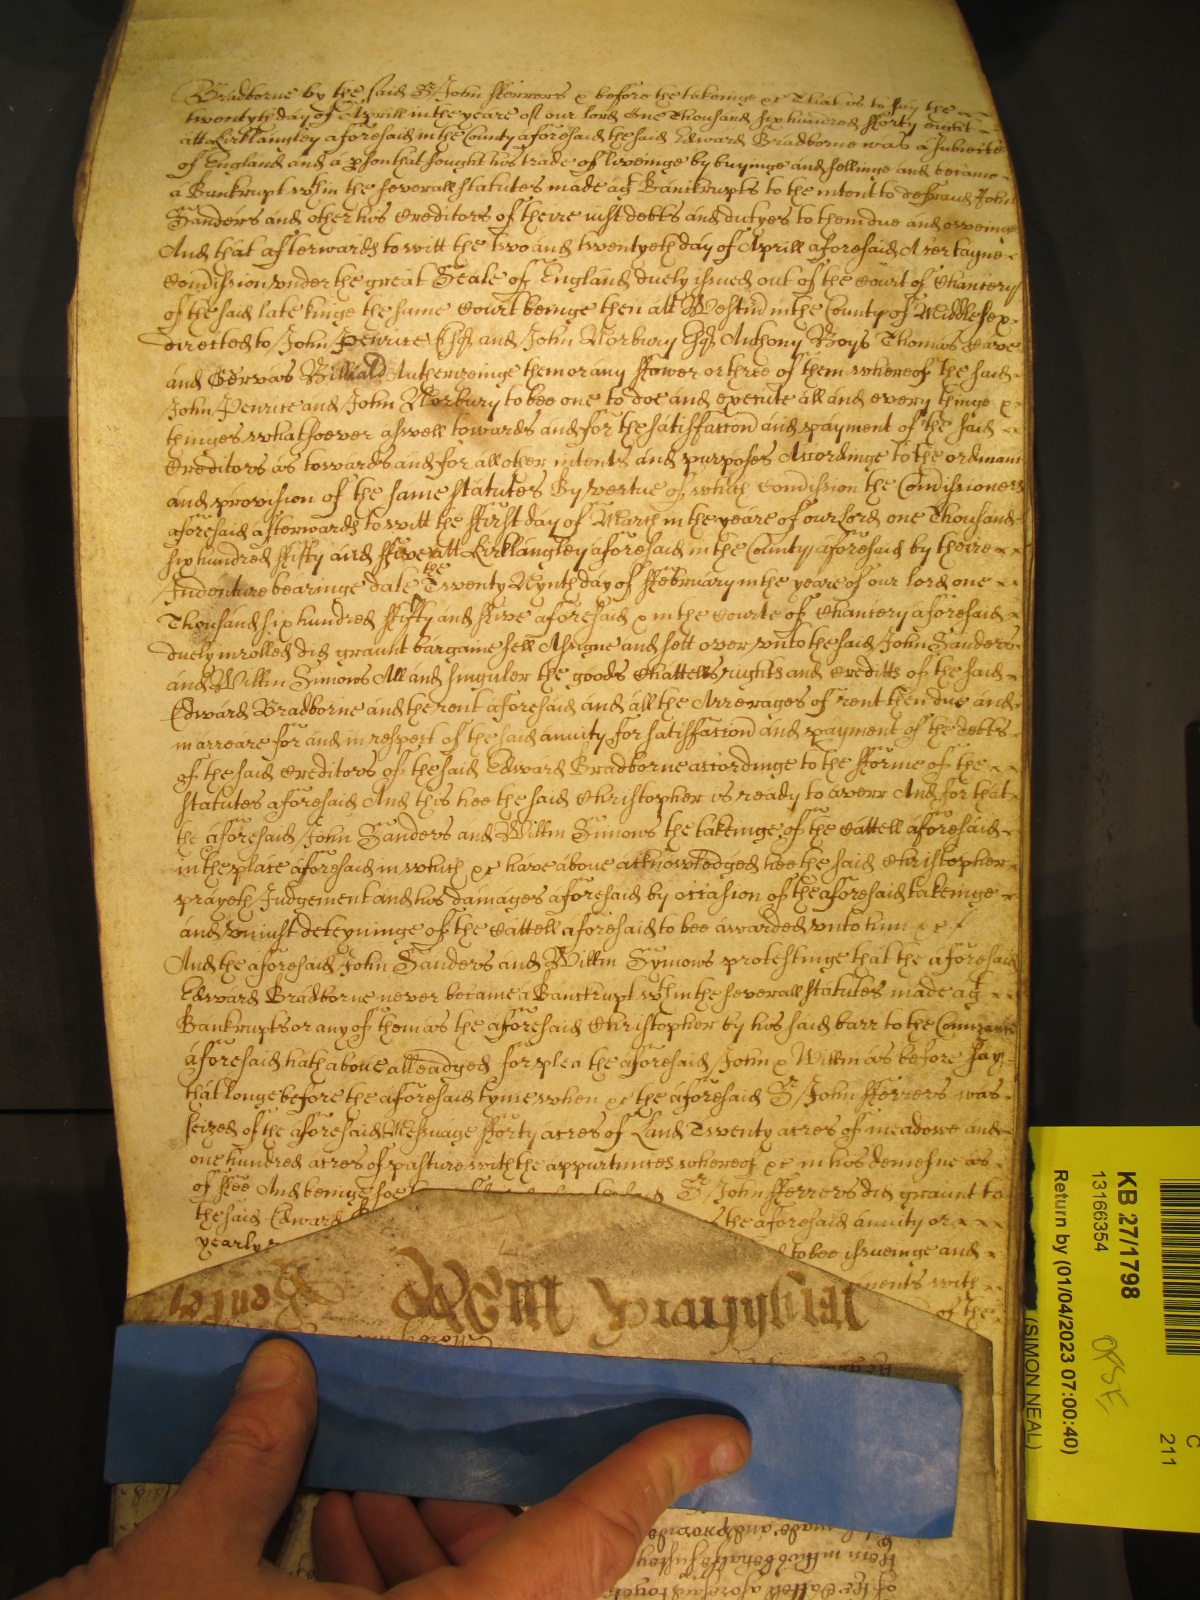 Bradborne by the said Sr John fferrers & before the takeinge &c That is to say the
twentyth day of Aprill in the yeare of our lord One Thousand six hundred fforty eight
att Kirklangley aforesaid in the County aforesaid the said Edward Bradborne was a subiecte
of England and a pson that sought his trade of liveinge by buyinge and sellinge and became
a Bankrupt wthin the severall statutes made agt Banckrupts to the intent to defraud John
Sanders and other his Creditors of theire iust debts and dutyes to them due and oweinge
And that afterwards to witt the two and twentyeth day of Aprill aforesaid A certayne
Comission under the great Seale of England duely issued out of the Court of Chancery
of the said late kinge the same Court beinge then att Westm in the County of Middlesex
directed to John Penrice Esqr and John Norbury Esqr Anthony Boys Thomas Cave
and Gervas Authorizeinge them or any ffower or three of them whereof the said
John Penrice and John Norbury to bee one to doe and execute all and every thinge &
thinges whatsoever aswell towards and for the satisfaccon and payment of the said
Creditors as towards and for all other intents and purposes Accordinge to the ordinanc
and provision of the same statutes By vertue of which Comission the Comissioners
aforesaid afterwards to witt the ffirst day of March in the yeare of our Lord one Thousand
six hundred ffifty and ffive att Kirklangley aforesaid in the County aforesaid by theire
Indenture beareinge date the Twenty Nynth day of ffebruary in the yeare of our lord one
Thousand six hundred ffifty and ffive aforesaid & in the Courte of Chancery aforesaid
duely inrolled did graunt bargaine sell Assigne and sett over unto the said John Sanders
and Willm Simons All and singuler the goods Chattells rights and Creditts of the said
Edward Bradborne and the rent aforesaid and all the Arrerages of rent then due and
in arreare for and in respect of the said anuity for satisfaccion and payment of the debts
of the said Creditors of the said Edward Bradborne accordinge to the fforme of the
statutes aforesaid And this hee the said Christopher is ready to averr And for that
the aforesaid John Sanders and Willm Simons the takeinge of the Cattell aforesaid
in the place aforesaid in which &c have above acknowledged hee the said Christopher
prayeth Judgement and his damages aforesaid by occasion of the aforesaid takeinge
and uniust deteyninge of the Cattell aforesaid to bee awarded unto him &c
And the aforesaid John Sanders and Willm Symons protestinge that the aforesaid
Edward Bradborne never became a Banckrupt wthin the severall statutes made agt
Bankrupts or any of them as the aforesaid Christopher by his said barr to the Conuzance
aforesaid hath above alleadged for plea the aforesaid John & Willm as before say
that longe before the aforesaid tyme when &c the aforesaid Sr John fferrers was
seized of the aforesaid Messuage fforty acres of Land Twenty acres of meadowe and
one hundred acres of pasture with the appurtnces whereof &c in his demesne as
of ffee And beinge soe Sr John fferrers did graunt to
the said Edward the aforesaid anuity or
yearly to bee issueinge and
with
of the
KB 27/1798
13166354
Return by (01/04/2023 07:00:40)
(SIMON NEAL)
C
211